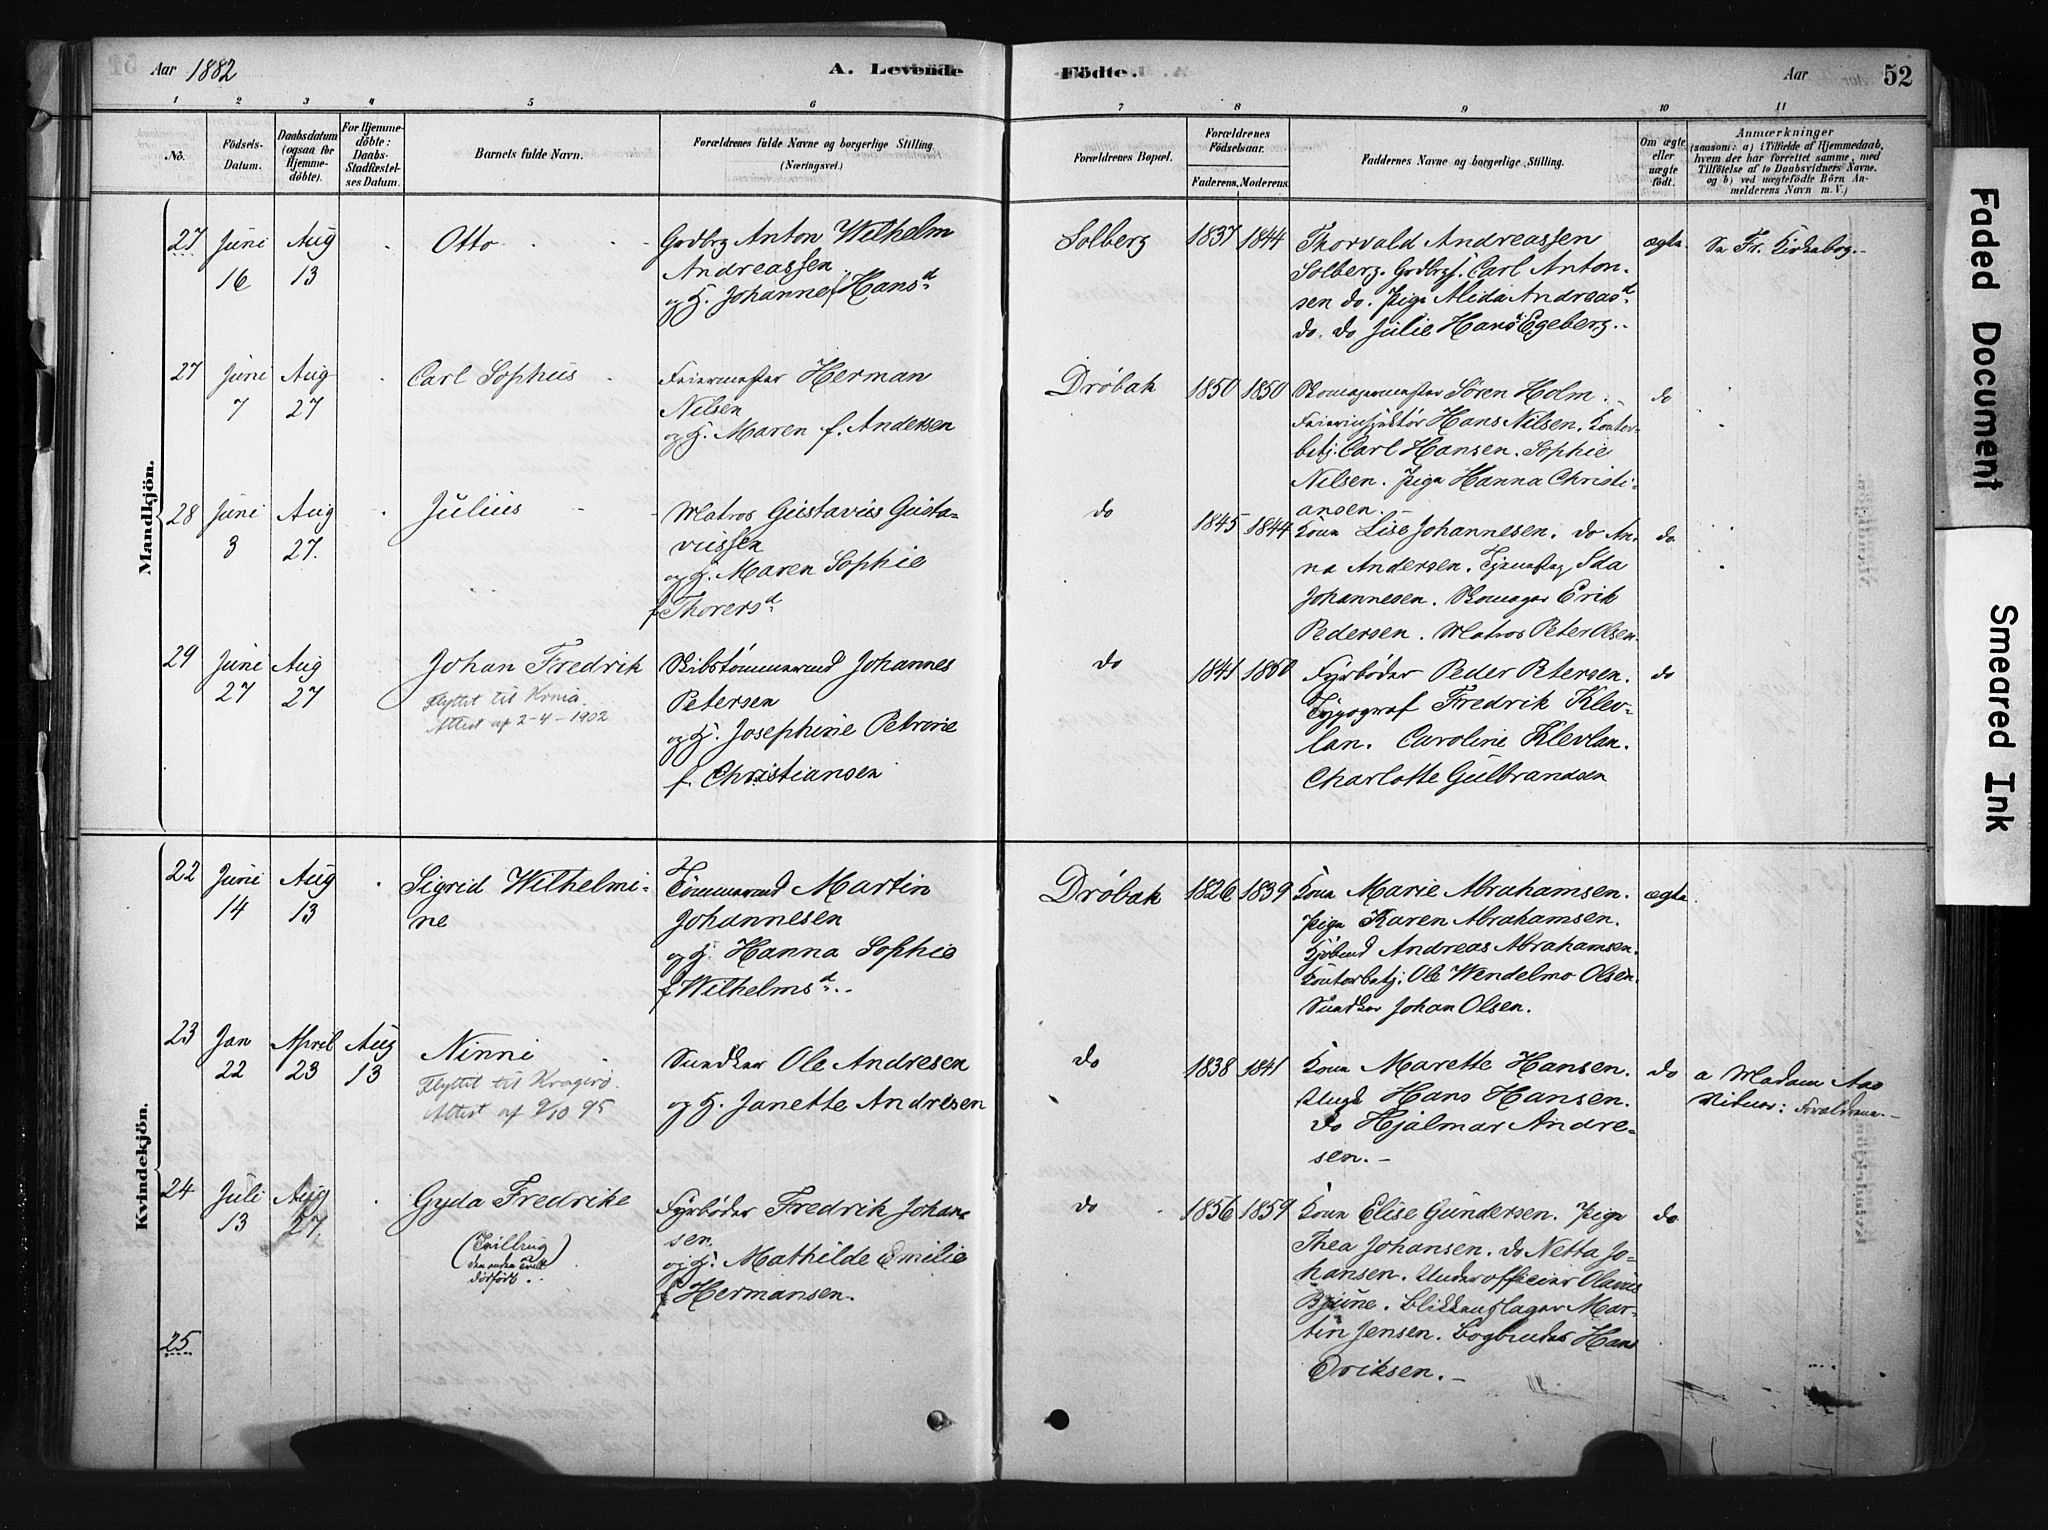 Aar 1882
A. Levende Födte.
Aar 52
1 2 3 4 5 6 7 8 9 10 11
No.
Födsels-
Datum.
Daabsdatum
(ogsaa for
Hjemme-
döbte).
For Hjemme-
döbte:
Daabs-
Stadfæstel-
ses Datum.
Barnets fulde Navn.
Forældrenes fulde Navne og borgerlige Stilling.
(Næringsvei.)
Forældrenes Bopæl.
Forældrenes
Fødselsaar.
Faderens. Moderens.
Faddernes Navne og borgerlige Stilling.
Om ægte
eller
uægte
født.
Anmærkninger
(saasom: a) i Tilfælde af Hjemmedaab,
hvem der har forrettet samme, med
Tilföielse af to Daabsvidners Navne,
og b) ved uægtefödte Börn An-
melderens Navn m. V.)
Mandkjön.
27 Juni 16 Aug 13
Otto
Grdbrg Anton Wilhelm
Andreassen
og H. Johanne f Hansd
Solberg 1837 1844
Thorvald Andreassen
Solberg. Grdbrgs. Carl Anton-
sen do. Pige Alida Andreasd
do. do Julie Hans Egeberg.
ægte
Se Fr. Kirkebog.
27 Juni 7 Aug 27
Carl Sophus
Feiermester Herman
Nilsen
og H. Maren f. Andersen
Drøbak 1850 1850
Skomagermester Sören Holm.
Feierinspektör Hans Nilsen. Kontor-
betj. Carl Hansen. Sophie
Nilsen. Pige Hanna Christi-
ansen.
do
28 Juni 3 Aug 27.
Julius
Matros Gustavus Gusta-
vussen
og H. Maren Sophie
f Thorersd
do 1845 1844
Kone Lise Johannesen. do An-
na Andersen. Tjenestep Ida
Johannesen. Skomager Erik
Pedersen. Matros Peter Olsen.
do
29 Juni 27 Aug 27
Johan Fredrik
Flyttet til Krnia.
Attest af 2-4-1902
Skibstømmermd Johannes
Petersen
og H. Josephine Petrine
f. Christiansen
do 1841 1850
Fyrböder Peder Petersen.
Typograf Fredrik Klev-
lan. Caroline Klevlan.
Charlotte Gulbrandsen
do
Kvindekjön.
22 Juni 14 Aug 13
Sigrid Wilhelmi-
ne
Tömmermd Martin
Johannesen
og H. Hanna Sophie
f Wilhelmsd
Drøbak 1826 1839
Kone Marie Abrahamsen.
Pige Karen Abrahamsen.
Kjöbmd Andreas Abrahamsen.
Kontorbetj. Ole Wendelmo Olsen.
Snedker Johan Olsen.
ægte.
23 Jan 22 April 23 Aug 13
Ninni
Flyttet til Kragerö.
Attest af 9/10 95
Snedker Ole Andresen
og H. Janette Andresen
do 1838 1841
Kone Marette Hansen.
Ungk Hans Hansen.
do Hjalmar Andre-
sen.
do
a Madam Aas
Vidner: Forældrene.
24 Juli 13 Aug 27.
Gyda Fredrike
(Tvilling
den anden Tvill
dödfödt.)
Fyrböder Fredrik Johan-
sen.
og H. Mathilde Emilie
f Hermansen.
do 1856 1859
Kone Elise Gundersen. Pige
Thea Johansen. do Netta Jo-
hansen. Underofficier Olavus
Bjune. Blikkenslager Mar-
tin Jensen. Bogbinder Hans
Eriksen.
do
25
Faded Document
Smeared Ink